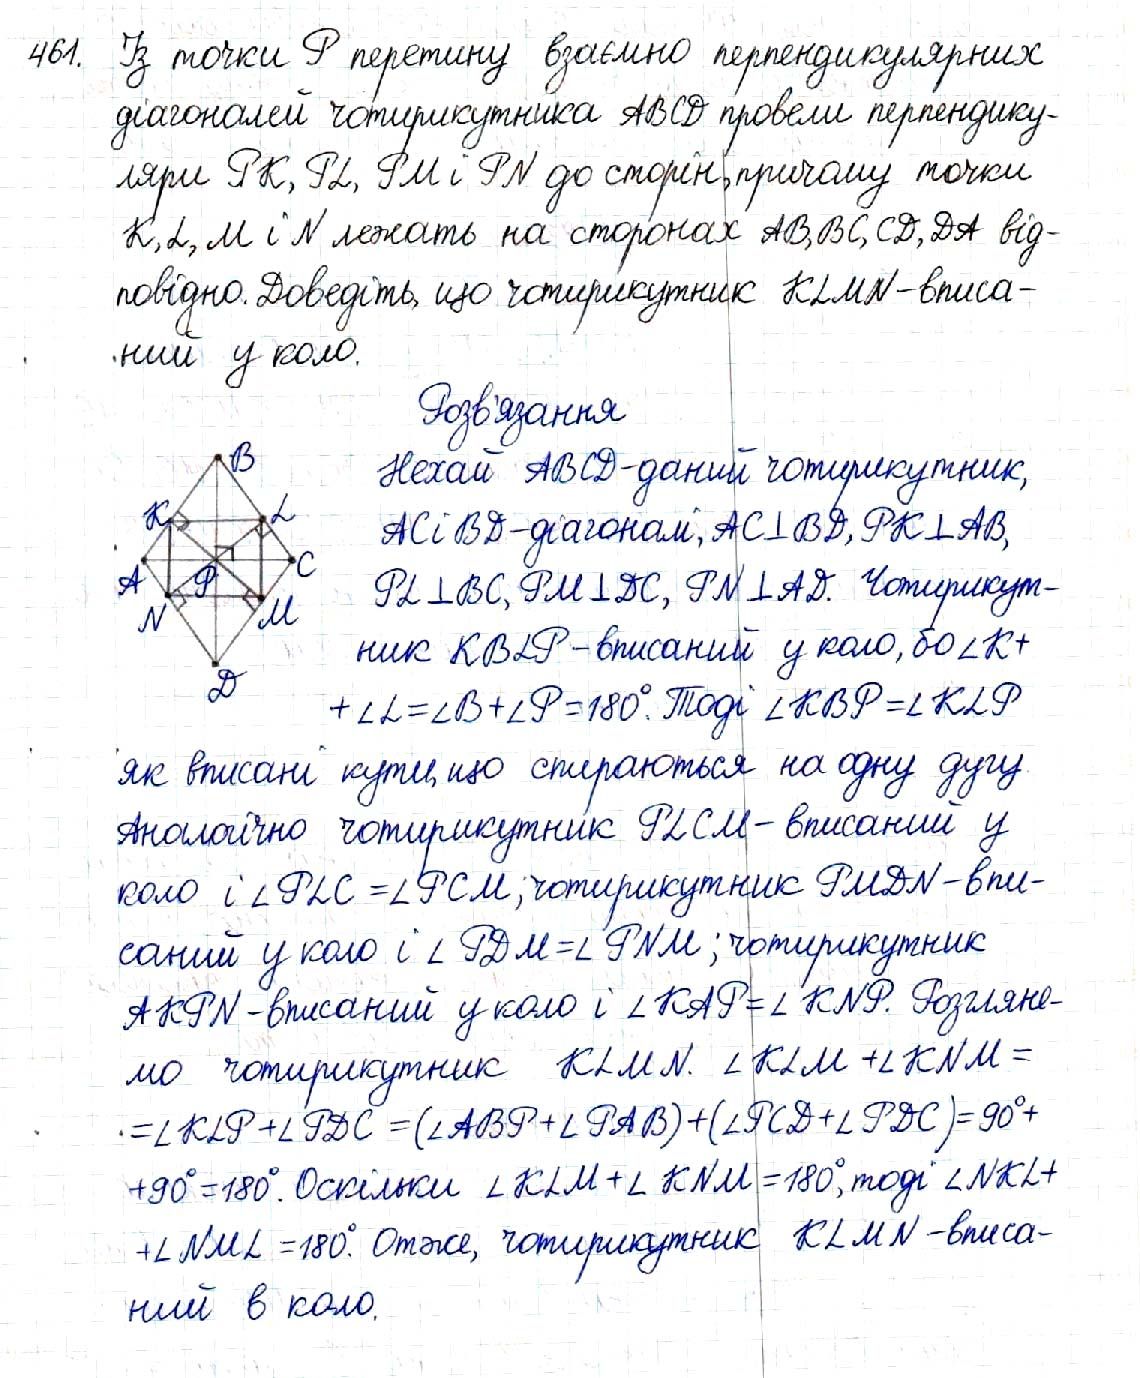 461. Із точки P перетину взаємно перпендикулярних
діагоналей чотирикутника ABCD провели перпендику-
ляри PK, PL, PM і PN до сторін, причому точки
K, L, M і N лежать на сторонах AB, BC, CD, DA від-
повідно. Доведіть, що чотирикутник KLMN - вписа-
ний у коло.
Розв'язання
B
K
L
A
P
C
N
M
D
Нехай ABCD - даний чотирикутник,
AC і BD - діагоналі, AC⊥BD, PK⊥AB,
PL⊥BC, PM⊥DC, PN⊥AD. Чотирикут-
ник KBLP - вписаний у коло, бо ∠K+
+∠L=∠B+∠P=180°. Тоді ∠KBP=∠KLP
як вписані кути, що спираються на одну дугу.
Аналогічно чотирикутник PLCM - вписаний у
коло і ∠PLC=∠PCM; чотирикутник PMDN - впи-
саний у коло і ∠PDM=∠PNM; чотирикутник
AKPN - вписаний у коло і ∠KAP=∠KNP. Розгляне-
мо чотирикутник KLMN. ∠KLM+∠KNM=
=∠KLP+∠PDC=(∠ABP+∠PAB)+(∠PCD+∠PDC)=90°+
+90°=180°. Оскільки ∠KLM+∠KNM=180°, тоді ∠NKL+
+∠NML=180°. Отже, чотирикутник KLMN - вписа-
ний в коло.